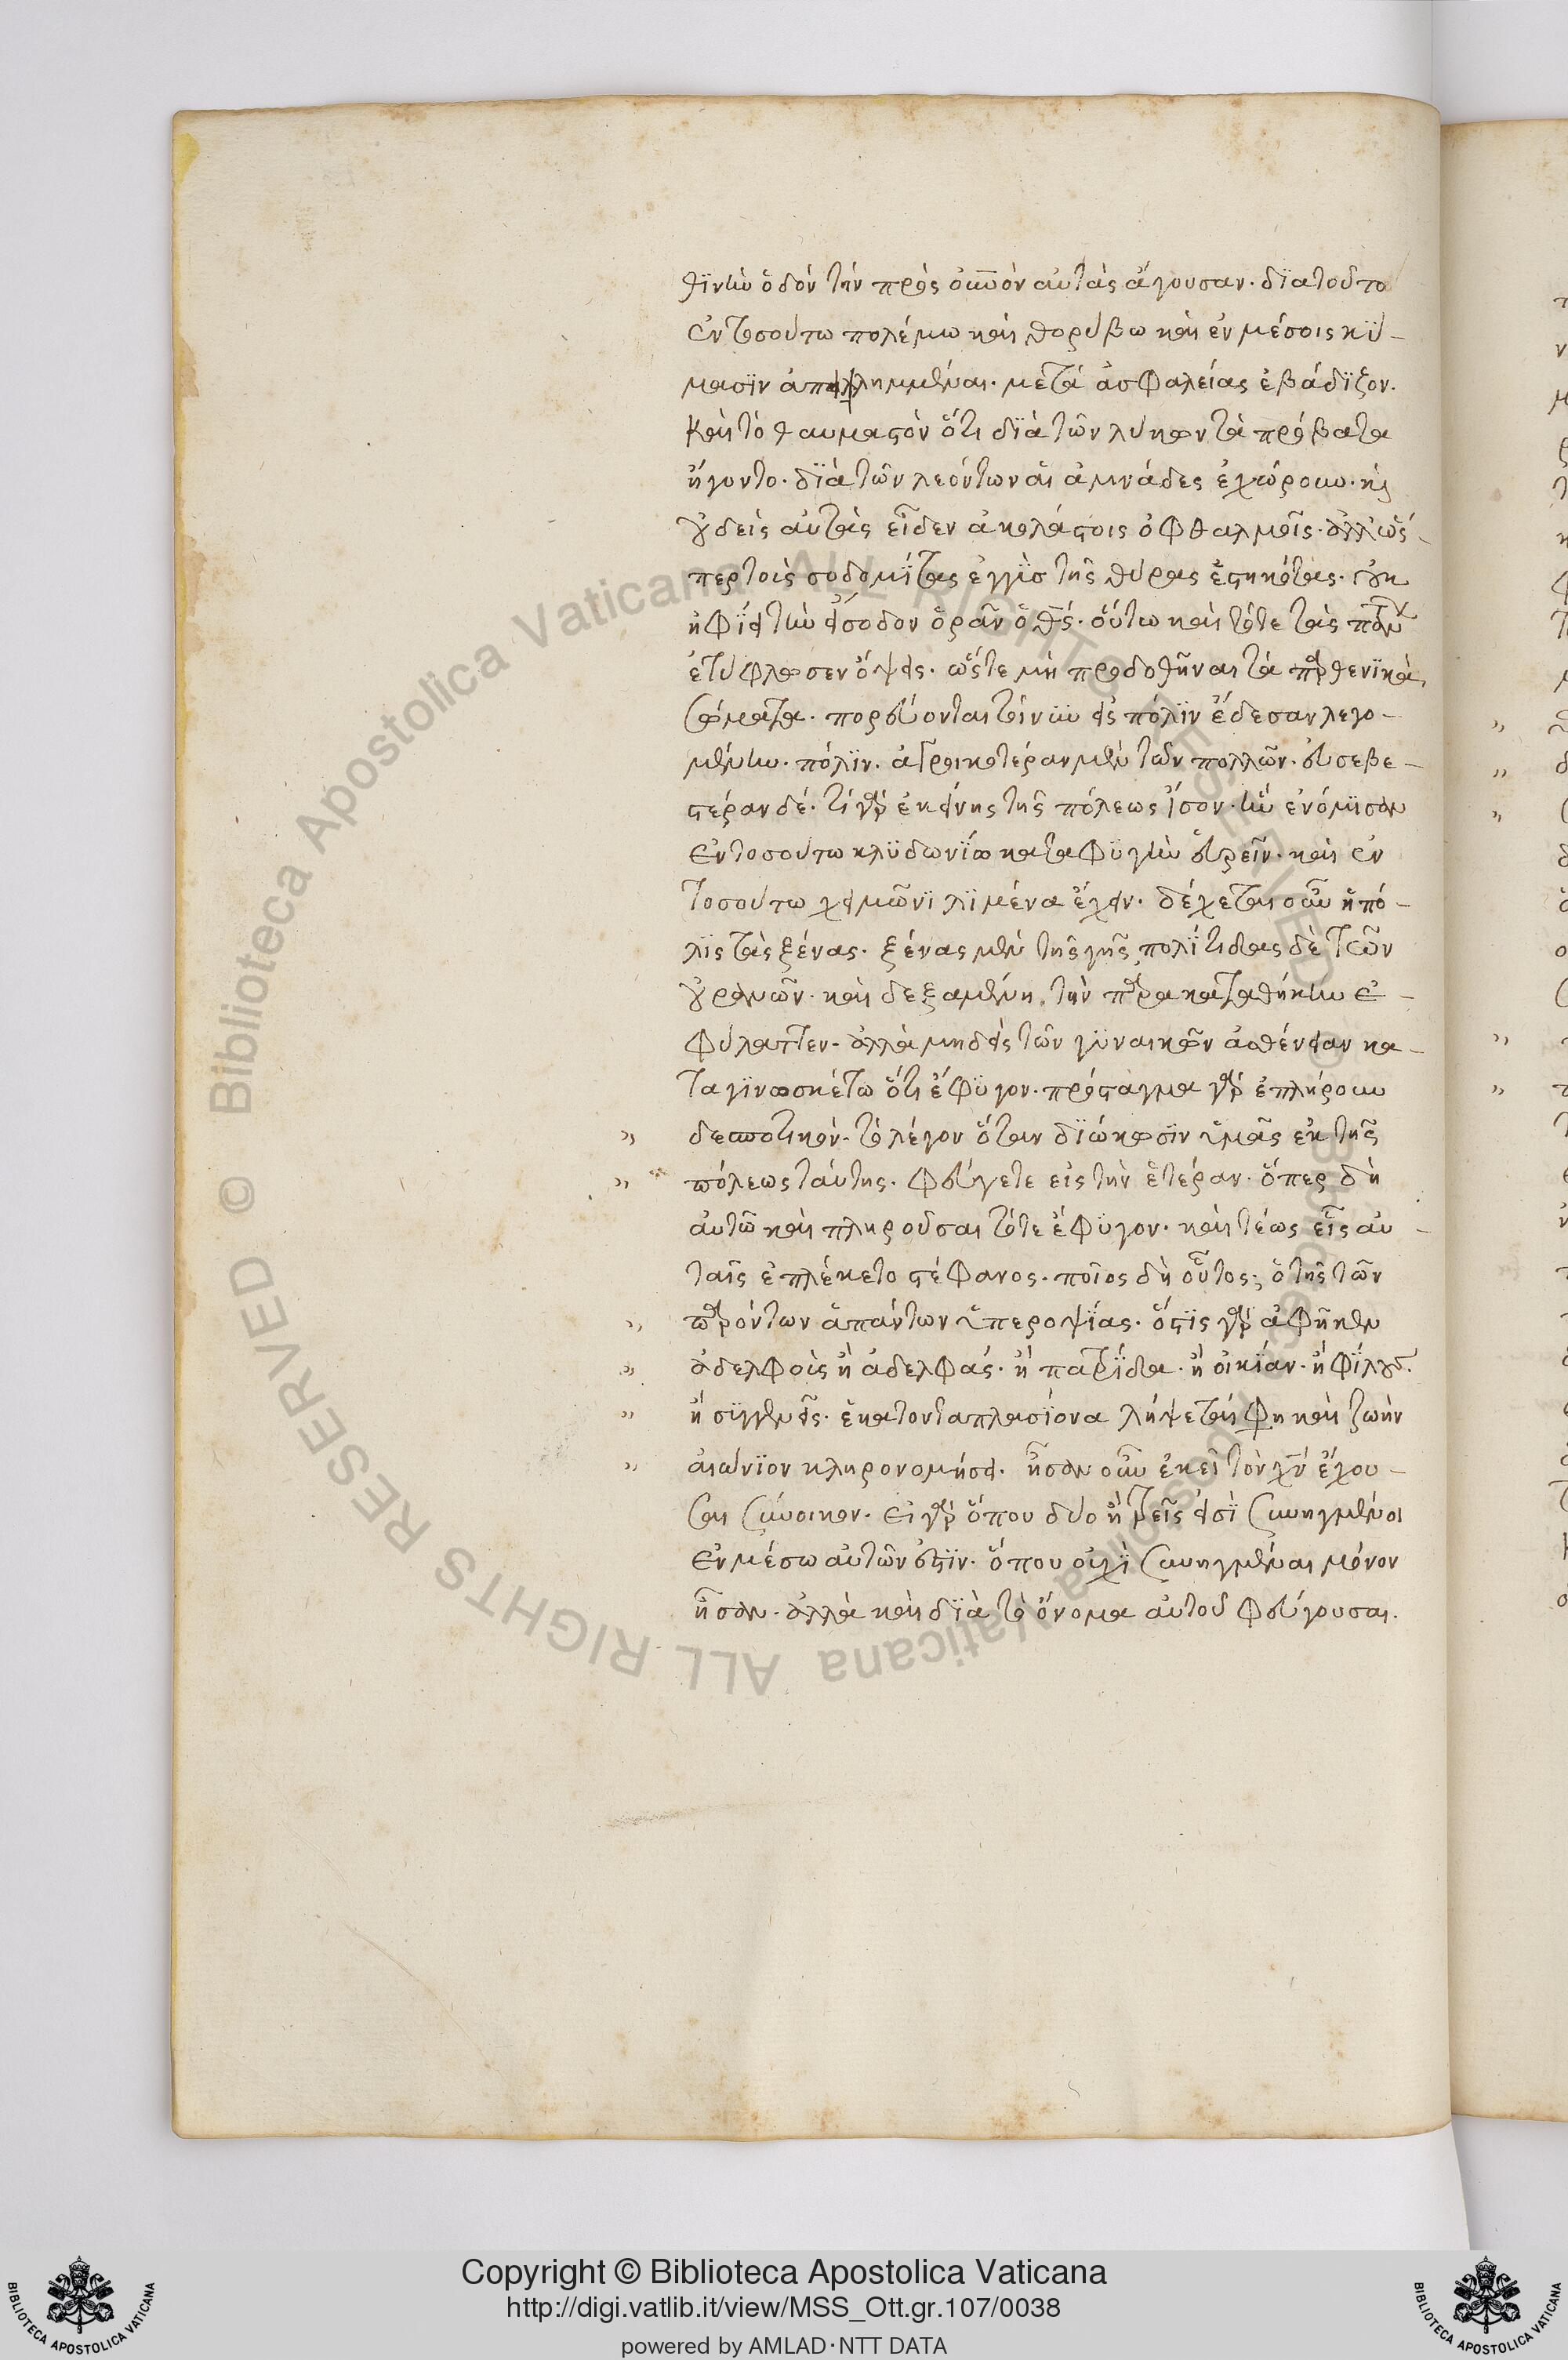 θινὴν ὁδὸν τὴν πρὸς οὐρανὸν αὐτὰς ἄγουσαν. διατοῦτο
ἐν τοσούτω πολέμω καὶ θορύβω καὶ ἐν μέσοις κύ-
μασιν ἀπειλημμέναι. μετὰ ἀσφαλείας ἐβάδιζον.
καὶ τὸ θαυμαστὸν ὅτι διὰ τῶν λύκων τὰ πρόβατα
ἤγοντο. διὰ τῶν λεόντων αἱ ἀμνάδες ἐχώρουν. καὶ
οὐδεὶς αὐτὰς εἶδεν ἀκολάστοις ὀφθαλμοῖς. ἀλλ' ὥσ-
περ τοὺς σοδομίτας ἐγγὺς τῆς θύρας ἑστηκότας. οὐκ
ἠφίει τὴν εἴσοδον ὁρᾶν ὁ θς. οὕτω καὶ τότε τὰς πάντων
ἐτύφλωσεν ὄψεις. ὥστε μὴ προδοθῆναι τὰ παρθενικὰ
σώματα. πορεύονται τοίνυν εἰς πόλιν ἔδεσαν λεγο-
μένην. πόλιν. ἀγροικοτέραν μὲν τῶν πολλῶν. εὐσεβε-
στέραν δέ. τί γὰρ ἐκείνης τῆς πόλεως ἴσον. ἣν ἐνόμισαν
ἐν τοσούτω κλυδωνίω καταφυγὴν εὑρεῖν. καὶ ἐν
τοσούτω χειμῶνι λιμένα ἔχειν. δέχεται οὖν ἡ πό-
λις τὰς ξένας. ξένας μὲν τῆς γῆς πολίτιδας δὲ τῶν
οὐρανῶν. καὶ δεξαμένη τὴν παρακαταθήκην ἐ-
φύλαττεν. ἀλλὰ μηδεὶς τῶν γυναικῶν ἀσθένειαν κα-
ταγινωσκέτω ὅτι ἔφυγον. πρόσταγμα γὰρ ἐπλήρουν
» δεσποτικὸν. τὸ λέγον ὅταν διώκωσιν ὑμᾶς ἐκ τῆς
» πόλεως ταύτης. φεύγετε εἰς τὴν ἑτέραν. ὅπερ δὴ
αὐτῶ καὶ πληροῦσαι τότε ἔφυγον. καὶ τέως εἷς αὐ-
ταῖς ἐπλέκετο στέφανος. ποῖος δὴ οὗτος; ὁ τῆς τῶν
» παρόντων ἁπάντων ὑπεροψίας. ὅστις γὰρ ἀφῆκεν
» ἀδελφοὺς ἢ ἀδελφάς. ἢ πατρίδα. ἢ οἰκίαν. ἢ φίλους.
» ἢ συγγενεῖς. ἑκατονταπλασίονα λήψεται φη καὶ ζωὴν
» αἰώνιον κληρονομήσει. ἦσαν οὖν ἐκεῖ τὸν χν ἔχου-
σαι σύνοικον. εἰ γὰρ ὅπου δύο ἢ τρεῖς εἰσὶ συνηγμένοι
ἐν μέσω αὐτῶν ἐστιν. ὅπου οὐχὶ συνηγμέναι μόνον
ἦσαν. ἀλλὰ καὶ διὰ τὸ ὄνομα αὐτοῦ φεύγουσαι.
Biblioteca Apostolica Vaticana ALL RIGHTS RESERVED ©
Copyright © Biblioteca Apostolica Vaticana
http://digi.vatlib.it/view/MSS_Ott.gr.107/0038
powered by AMLAD·NTT DATA
BIBLIOTECA APOSTOLICA VATICANA
BIBLIOTECA APOSTOLICA VATICANA